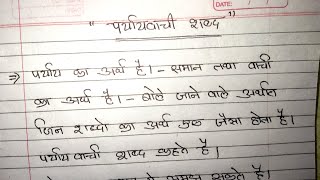 DATE:
" पर्यायवाची शब्द "
⇒ पर्याय का अर्थ है। - समान तथा वाची
का अर्थ है। - बोले जाने वाले अर्थात
जिन शब्दो का अर्थ एक जैसा होता है।
पर्यायवाची शब्द कहते है।